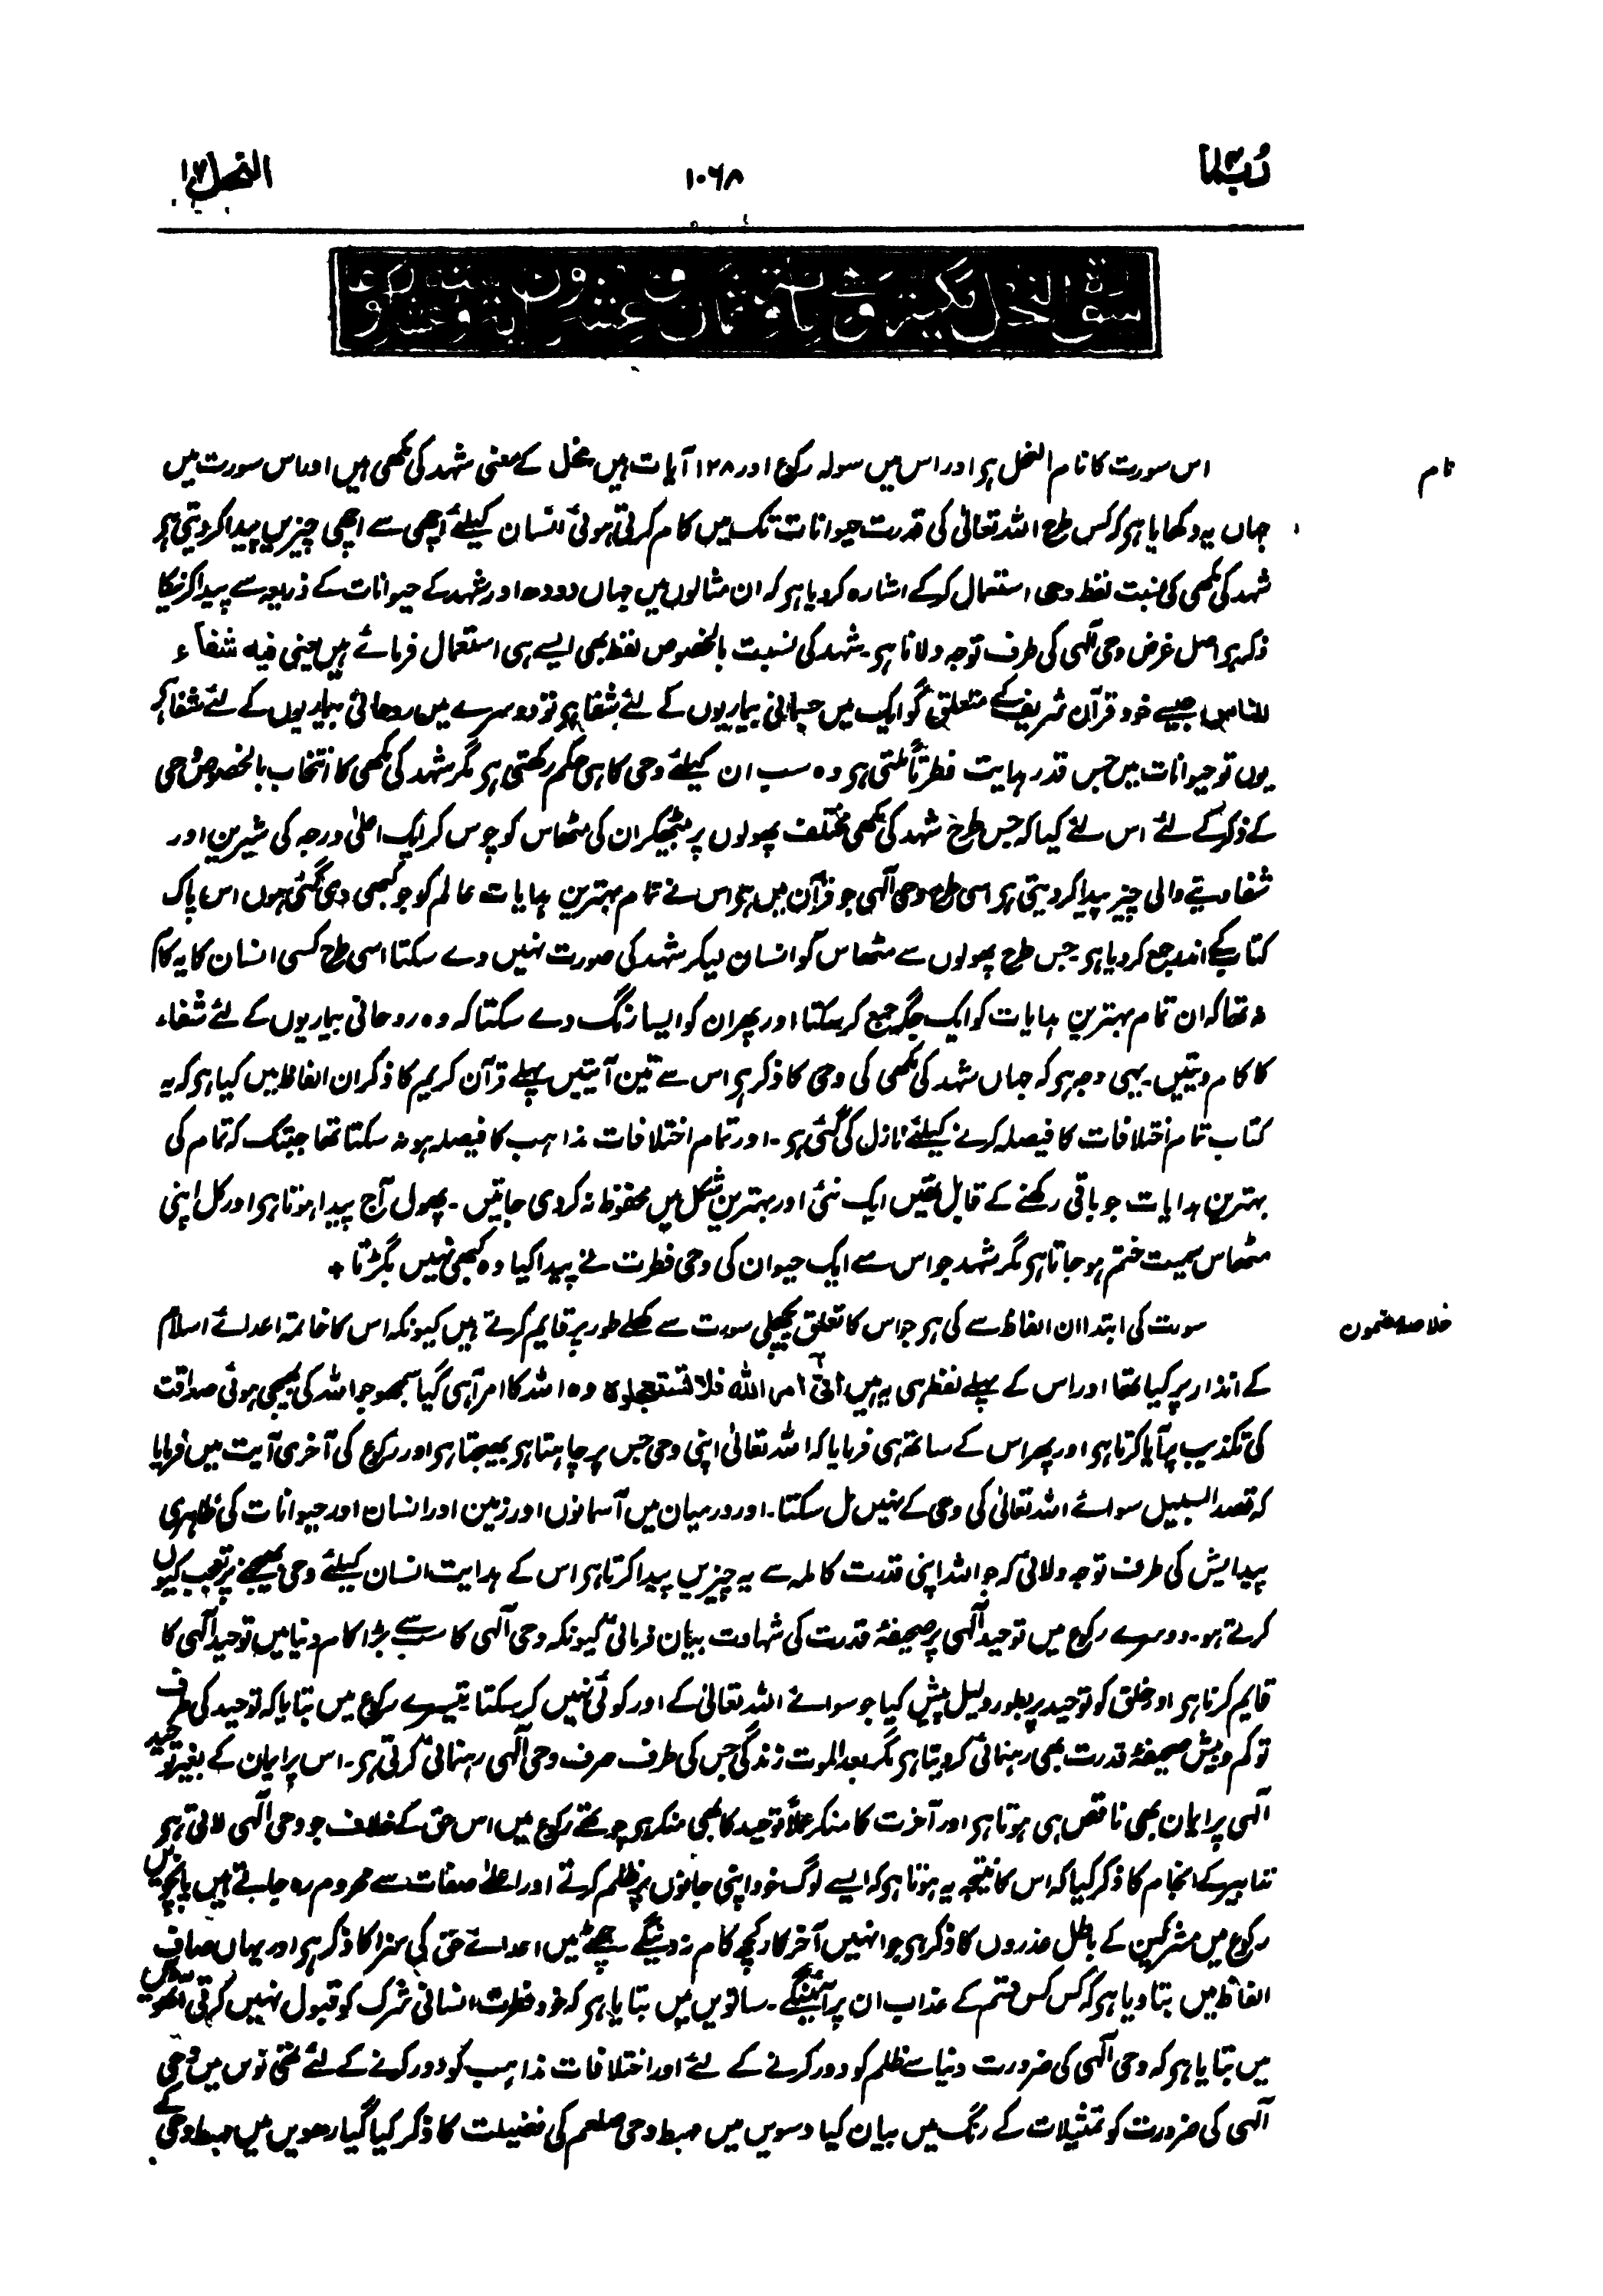 ربما
۱۰۶۸
النحل ۱۶
سورة النحل مكية وهي مائة وثمان وعشرون آية وستة عشر ركوعا
نام
اس سورت کا نام النحل ہر اور اس میں سولہ رکوع اور ۱۲۸ آیات ہیں نحل کے معنی شہد کی مکھی ہیں اور اس سورت میں
جہاں یہ دکھایا ہر کہ کس طرح اللہ تعالیٰ کی قدرت حیوانات تک میں کام کرتی ہوئی انسان کیلئے اچھی سے اچھی چیزیں پیدا کر دیتی ہر
شہد کی مکھی کی نسبت لفظ وحی استعمال کر کے اشارہ کر دیا ہر کہ ان مثالوں میں جہاں دودھ اور شہد کے حیوانات کے ذریعہ سے پیدا کرنیکا
ذکر ہر اصل غرض وحی الٰہی کی طرف توجہ دلانا ہر۔ شہد کی نسبت بالخصوص لفظ بھی ایسے ہی استعمال فرمائے ہیں یعنی فیه شفاء
للناس جیسے خود قرآن شریف کے متعلق گو ایک میں جسمانی بیماریوں کے لئے شفا ہر تو دوسرے میں روحانی بیماریوں کے لئے شفا ہر
یوں تو حیوانات میں جس قدر ہدایت فطرتاً ملتی ہر وہ سب ان کیلئے وحی کا ہی حکم رکھتی ہر مگر شہد کی مکھی کا انتخاب بالخصوص وحی
کے ذکر کے لئے اس لئے کیا کہ جس طرح شہد کی مکھی مختلف پھولوں پر بیٹھکر ان کی مٹھاس کو چوس کر ایک اعلیٰ درجہ کی شیریں اور
شفا دینے والی چیز پیدا کر دیتی ہر اسی طرح وحی الٰہی جو قرآن میں ہر اس نے تمام بہترین ہدایات عالم کو جو کبھی دی گئی ہوں اس پاک
کتاب کے اندر جمع کر دیا ہر۔ جس طرح پھولوں سے مٹھاس کو انسان لیکر شہد کی صورت نہیں دے سکتا اسی طرح کسی انسان کا یہ کام
نہ تھا کہ ان تمام بہترین ہدایات کو ایک جگہ جمع کر سکتا اور پھر ان کو ایسا رنگ دے سکتا کہ وہ روحانی بیماریوں کے لئے شفاء
کا کام دیتیں۔ یہی وجہ ہر کہ جہاں شہد کی مکھی کی وحی کا ذکر ہر اس سے تین آیتیں پہلے قرآن کریم کا ذکر ان الفاظ میں کیا ہر کہ یہ
کتاب تمام اختلافات کا فیصلہ کرنے کیلئے نازل کی گئی ہر۔ اور تمام اختلافات مذاہب کا فیصلہ ہو نہ سکتا تھا جبتک کہ تمام کی
بہترین ہدایات جو باقی رکھنے کے قابل تھیں ایک نئی اور بہترین شکل میں محفوظ نہ کر دی جاتیں۔ پھول آج پیدا ہوتا ہر اور کل اپنی
مٹھاس سمیت ختم ہو جاتا ہر مگر شہد جو اس سے ایک حیوان کی وحی فطرت نے پیدا کیا وہ کبھی نہیں بگڑتا +
خلاصہ مضمون
سورت کی ابتدا ان الفاظ سے کی ہر جو اس کا تعلق پچھلی سورت سے کھلے طور پر قایم کرتے ہیں کیونکہ اس کا خاتمہ اعدائے اسلام
کے انذار پر کیا تھا اور اس کے پہلے لفظ ہی یہ ہیں اتی امر الله فلا تستعجلوه وہ اللہ کا امر آ ہی گیا سمجھو جو اللہ کی بھیجی ہوئی صداقت
کی تکذیب پر آیا کرتا ہر اور پھر اس کے ساتھ ہی فرمایا کہ اللہ تعالیٰ اپنی وحی جس پر چاہتا ہر بھیجتا ہر اور رکوع کی آخری آیت میں فرمایا
کہ قصد السبیل سوائے اللہ تعالیٰ کی وحی کے نہیں مل سکتا۔ اور درمیان میں آسمانوں اور زمین اور انسان اور حیوانات کی ظاہری
پیدایش کی طرف توجہ دلائی کہ جو اللہ اپنی قدرت کاملہ سے یہ چیزیں پیدا کرتا ہر اس کے ہدایت انسان کیلئے وحی بھیجنے پر تعجب کیوں
کرتے ہو۔ دوسرے رکوع میں توحید الٰہی پر صحیفۂ قدرت کی شہادت بیان فرمائی کیونکہ وحی الٰہی کا سب سے بڑا کام دنیا میں توحید الٰہی کا
قایم کرنا ہر اور خلق کو توحید پر بطور دلیل پیش کیا جو سوائے اللہ تعالیٰ کے اور کوئی نہیں کر سکتا۔ تیسرے رکوع میں بتایا کہ توحید کی طرف
تو کم و بیش صحیفۂ قدرت بھی رہنمائی کر دیتا ہر مگر بعد الموت زندگی جس کی طرف صرف وحی الٰہی رہنمائی کرتی ہر۔ اس پر ایمان کے بغیر توحید
الٰہی پر ایمان بھی ناقص ہی ہوتا ہر اور آخرت کا منکر عملاً توحید کا بھی منکر ہر چوتھے رکوع میں اس حق کے خلاف جو وحی الٰہی لاتی ہر
تدابیر کے انجام کا ذکر کیا کہ اس کا نتیجہ یہ ہوتا ہر کہ ایسے لوگ خود اپنی جانوں پر ظلم کرتے اور اعلےٰ صفات سے محروم رہ جاتے ہیں پانچویں
رکوع میں مشرکین کے باطل عذروں کا ذکر ہر جو انہیں آخر کار کچھ کام نہ دینگے چھٹے میں اعدائے حق کی سزا کا ذکر ہر اور یہاں صاف
الفاظ میں بتا دیا ہر کہ کس کس قسم کے عذاب ان پر آئینگے۔ ساتویں میں بتایا ہر کہ خود فطرت انسانی شرک کو قبول نہیں کرتی آٹھویں
میں بتایا ہر کہ وحی الٰہی کی ضرورت دنیا سے ظلم کو دور کرنے کے لئے اور اختلافات مذاہب کو دور کرنے کے لئے تھی نویں میں وحی
الٰہی کی ضرورت کو تمثیلات کے رنگ میں بیان کیا دسویں میں مہبط وحی صلعم کی فضیلت کا ذکر کیا گیارھویں میں مہبط وحی کے